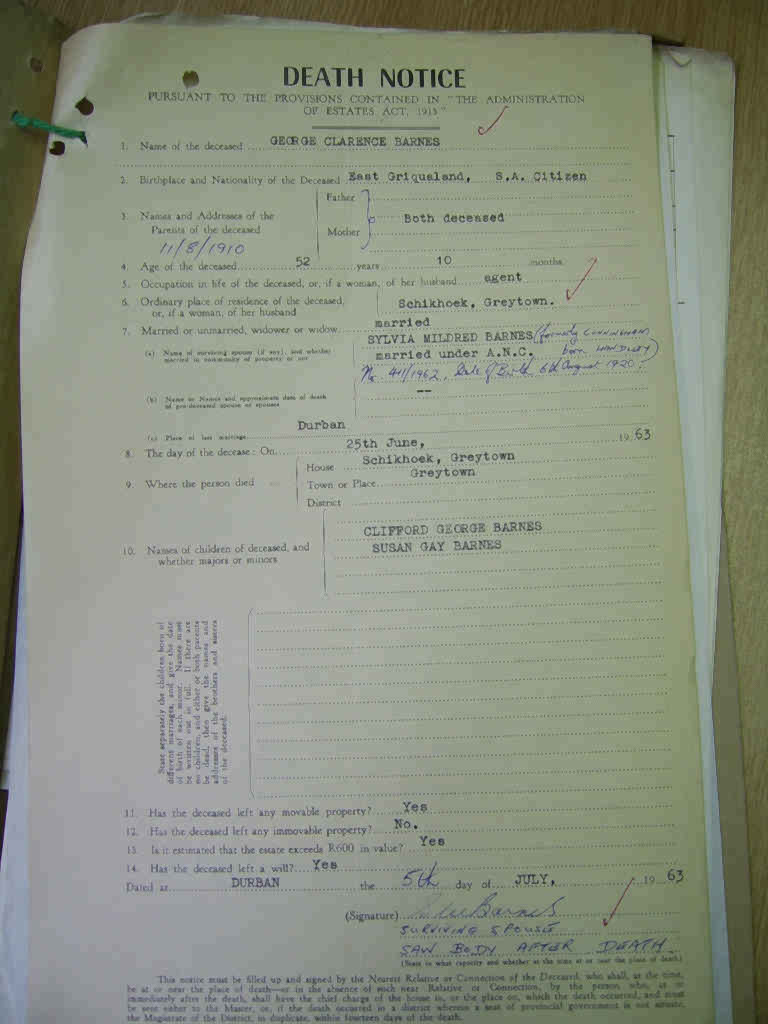 DEATH NOTICE
PURSUANT TO THE PROVISIONS CONTAINED IN "THE ADMINISTRATION
OF ESTATES ACT, 1913"
1. Name of the deceased GEORGE CLARENCE BARNES
2. Birthplace and Nationality of the Deceased East Griqualand, S.A. Citizen
Father
3. Names and Addresses of the Both deceased
Parents of the deceased Mother
11/8/1910
4. Age of the deceased 52 years 10 months.
5. Occupation in life of the deceased, or, if a woman, of her husband agent
6. Ordinary place of residence of the deceased, Schikhoek, Greytown.
or, if a woman, of her husband
7. Married or unmarried, widower or widow married
SYLVIA MILDRED BARNES (formerly CUNNINGHAM
(a) Name of surviving spouse (if any), and whether married under A.N.C. born HANDLEY)
married in community of property or not
No 411/1962. Date of Birth 6th August 1920.
(b) Name or Names and approximate date of death --
of pre-deceased spouse or spouses
(c) Place of last marriage Durban
8. The day of the decease: On 25th June, 1963
House Schikhoek, Greytown
9. Where the person died Town or Place Greytown
District
CLIFFORD GEORGE BARNES
10. Names of children of deceased, and SUSAN GAY BARNES
whether majors or minors
State separately the children born of
different marriages, and give the date
of birth of each minor. Names must
be written out in full. If there are
no children, and either or both parents
be dead, then give the names and
addresses of the brothers and sisters
of the deceased.
11. Has the deceased left any movable property? Yes
12. Has the deceased left any immovable property? No.
13. Is it estimated that the estate exceeds R600 in value? Yes
14. Has the deceased left a will? Yes
Dated at DURBAN the 5th day of JULY, 1963
(Signature) Barnes
SURVIVING SPOUSE
SAW BODY AFTER DEATH
(State in what capacity and whether at the time at or near the place of death.)
This notice must be filled up and signed by the Nearest Relative or Connection of the Deceased, who shall, at the time,
be at or near the place of death—or in the absence of such near Relative or Connection, by the person who, at or
immediately after the death, shall have the chief charge of the house in, or the place on, which the death occurred, and must
be sent either to the Master, or, if the death occurred in a district wherein a seat of provincial government is not situate,
the Magistrate of the District, in duplicate, within fourteen days of the death.